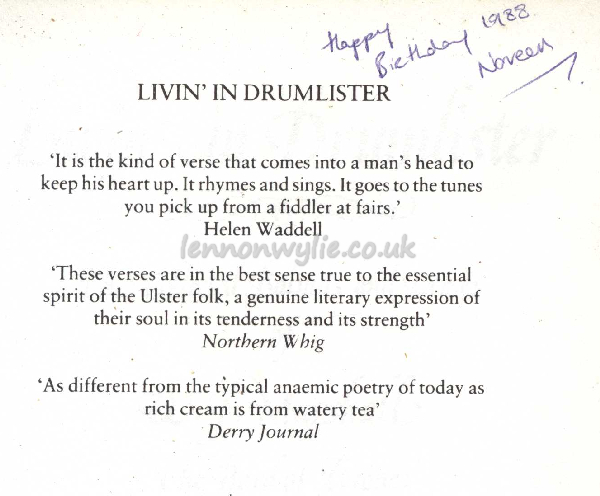 Happy
Birthday 1988
Noreen
LIVIN' IN DRUMLISTER
‘It is the kind of verse that comes into a man's head to
keep his heart up. It rhymes and sings. It goes to the tunes
you pick up from a fiddler at fairs.’
Helen Waddell
lennonwylie.co.uk
‘These verses are in the best sense true to the essential
spirit of the Ulster folk, a genuine literary expression of
their soul in its tenderness and its strength’
Northern Whig
‘As different from the typical anaemic poetry of today as
rich cream is from watery tea’
Derry Journal